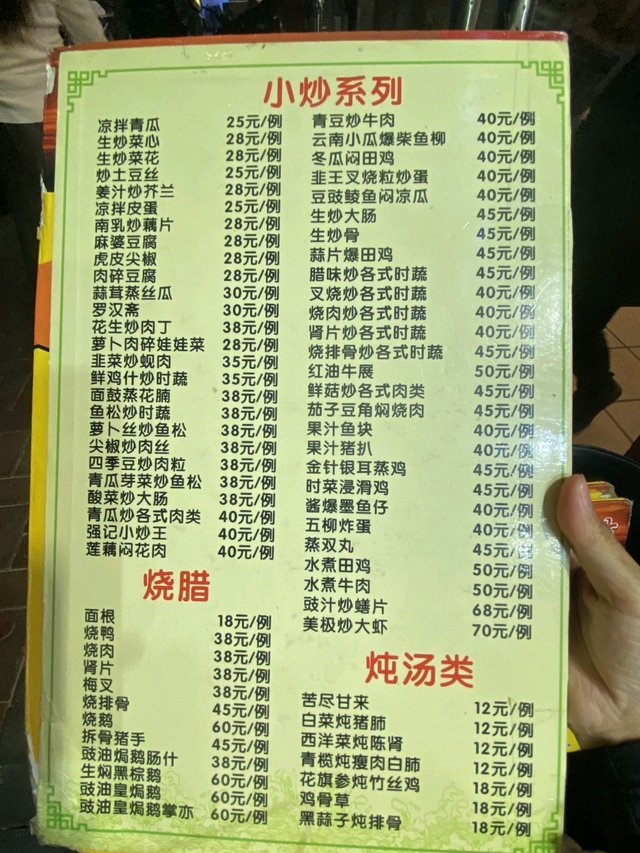 小炒系列
凉拌青瓜 25元/例
生炒菜心 28元/例
生炒菜花 28元/例
炒土豆丝 25元/例
姜汁炒芥兰 28元/例
凉拌皮蛋 25元/例
南乳炒藕片 28元/例
麻婆豆腐 28元/例
虎皮尖椒 28元/例
肉碎豆腐 28元/例
蒜茸蒸丝瓜 30元/例
罗汉斋 30元/例
花生炒肉丁 38元/例
萝卜肉碎娃娃菜 28元/例
韭菜炒蚬肉 35元/例
鲜鸡什炒时蔬 35元/例
面鼓蒸花腩 38元/例
鱼松炒时蔬 38元/例
萝卜丝炒鱼松 38元/例
尖椒炒肉丝 38元/例
四季豆炒肉粒 38元/例
青瓜芽菜炒鱼松 38元/例
酸菜炒大肠 38元/例
青瓜炒各式肉类 40元/例
强记小炒王 40元/例
莲藕闷花肉 40元/例
青豆炒牛肉 40元/例
云南小瓜爆柴鱼柳 40元/例
冬瓜闷田鸡 40元/例
韭王叉烧粒炒蛋 40元/例
豆豉鲮鱼闷凉瓜 40元/例
生炒大肠 45元/例
生炒骨 45元/例
蒜片爆田鸡 45元/例
腊味炒各式时蔬 45元/例
叉烧炒各式时蔬 40元/例
烧肉炒各式时蔬 40元/例
肾片炒各式时蔬 40元/例
烧排骨炒各式时蔬 45元/例
红油牛展 50元/例
鲜菇炒各式肉类 45元/例
茄子豆角焖烧肉 45元/例
果汁鱼块 40元/例
果汁猪扒 40元/例
金针银耳蒸鸡 45元/例
时菜浸滑鸡 45元/例
酱爆墨鱼仔 40元/例
五柳炸蛋 40元/例
蒸双丸 45元/例
水煮田鸡 50元/例
水煮牛肉 50元/例
豉汁炒蟮片 68元/例
美极炒大虾 70元/例
烧腊
面根 18元/例
烧鸭 38元/例
烧肉 38元/例
肾片 38元/例
梅叉 38元/例
烧排骨 45元/例
烧鹅 60元/例
拆骨猪手 45元/例
豉油焗鹅肠什 38元/例
生焖黑棕鹅 60元/例
豉油皇焗鹅 60元/例
豉油皇焗鹅掌亦 60元/例
炖汤类
苦尽甘来 12元/例
白菜炖猪肺 12元/例
西洋菜炖陈肾 12元/例
青榄炖瘦肉白肺 12元/例
花旗参炖竹丝鸡 18元/例
鸡骨草 18元/例
黑蒜子炖排骨 18元/例